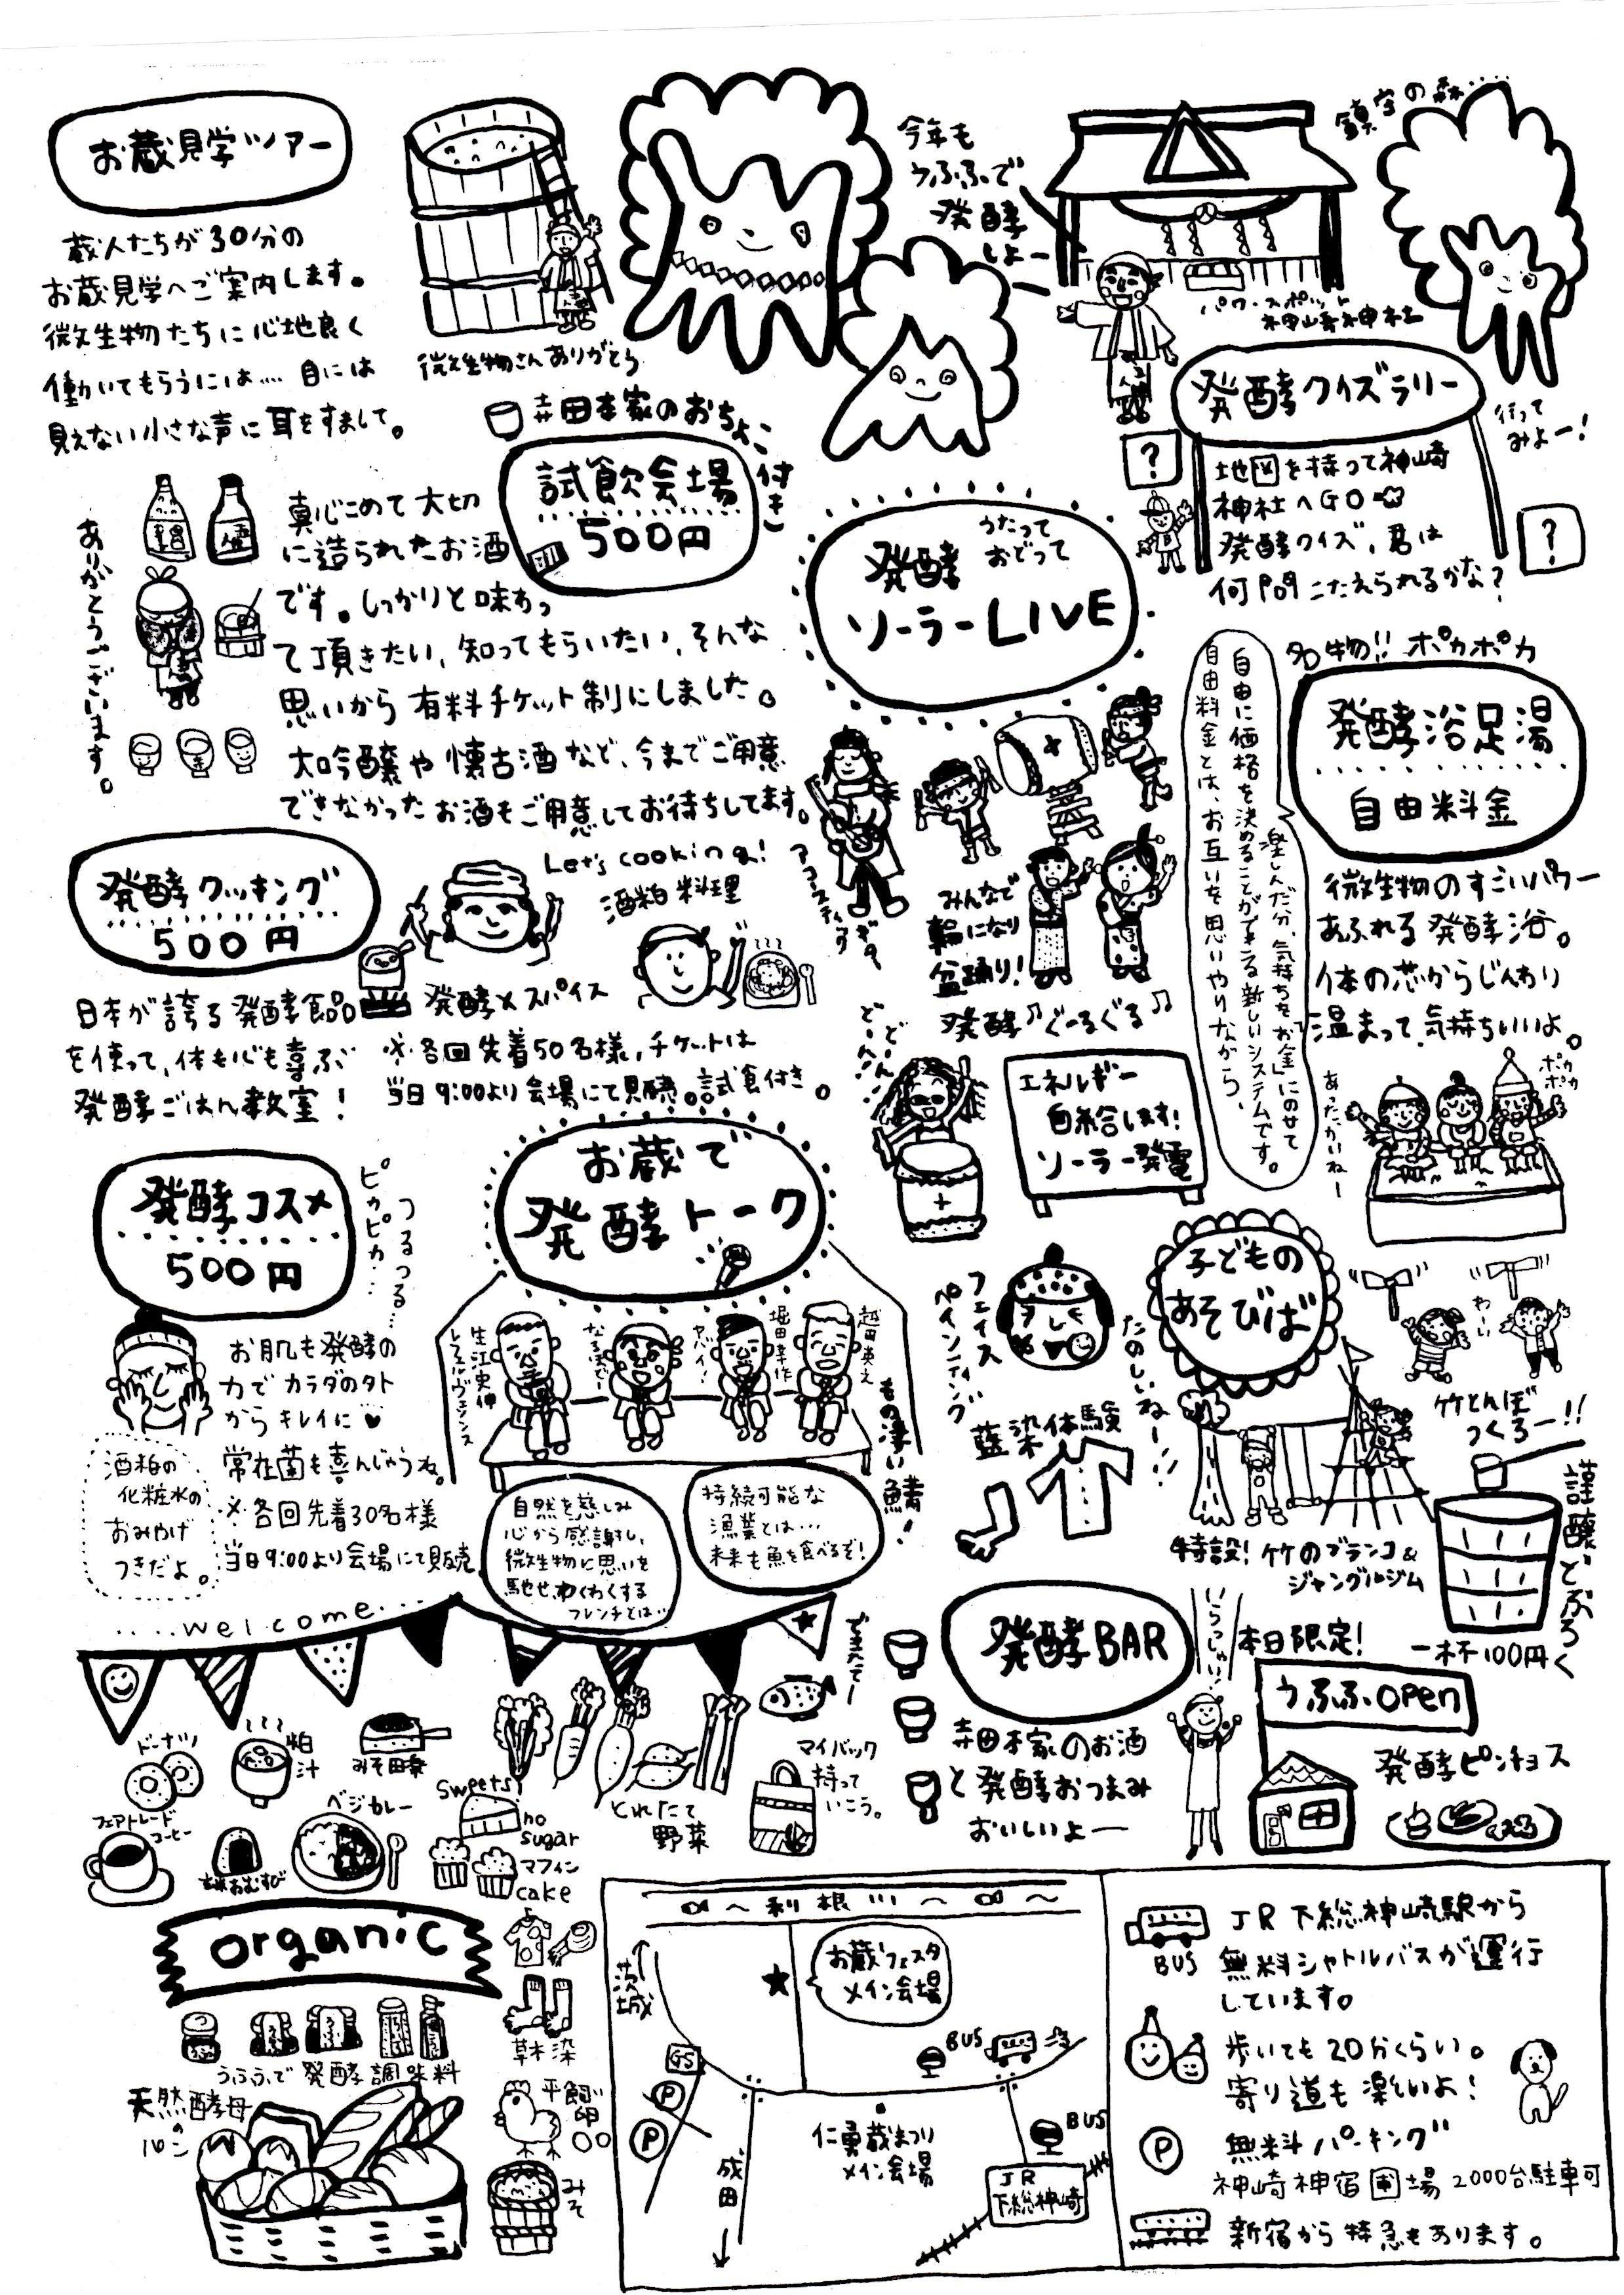 お蔵見学ツアー
蔵人たちが30分の
お蔵見学へご案内します。
微生物たちに心地良く
働いてもらうには… 目には
見えない小さな声に耳をすまして。
微生物さんありがとう
今年も
うふふで
発酵
しよー
鎮守の森……
パワースポット
神崎神社
発酵クイズラリー
行って
みよー!
?
地図を持って神崎
神社へGO
発酵クイズ、君は
何問こたえられるかな?
?
寺田本家のおちょこ付き
試飲会場
500円
ありがとうございます。
真心こめて大切
に造られたお酒
です。しっかりと味わっ
て頂きたい、知ってもらいたい、そんな
思いから有料チケット制にしました。
大吟醸や懐古酒など、今までご用意
できなかったお酒もご用意してお待ちしてます。
うたって
おどって
発酵
ソーラーLIVE
アコースティックギター
みんなで
輪になり
盆踊り!
発酵♪ぐーるぐる♪
どどーん
どーん!
エネルギー
自給します!
ソーラー発電
名物!! ポカポカ
発酵浴足湯
自由料金
楽しんだ分、気持ちを「お金」にのせて
自由に価格を決めることができる新しいシステムです。
自由料金とは、お互いを思いやりながら、
微生物のすごいパワー
あふれる発酵浴。
体の芯からじんわり
温まって気持ちいいよ。
あったかいねー
ポカ
ポカ
発酵クッキング
500円
Let's cooking!
酒粕料理
発酵×スパイス
日本が誇る発酵食品
を使って、体も心も喜ぶ
発酵ごはん教室!
※各回先着50名様、チケットは
当日9:00より会場にて販売。試食付き。
発酵コスメ
500円
つるつる…
ピカピカ…
お肌も発酵の
力でカラダの外
からキレイに♥
常在菌も喜んじゃうね。
※各回先着30名様
当日9:00より会場にて販売
酒粕の
化粧水の
おみやげ
つきだよ。
お蔵で
発酵トーク
生江史伸
レフェルヴェソンス
なるほどー
ヤバイ!
堀田幸作
越田英之
もの凄い鯖!
自然を慈しみ
心から感謝し、
微生物に思いを
馳せ、わくわくする
フレンチとは…
持続可能な
漁業とは…
未来も魚を食べるぞ!
子どもの
あそびば
フェイス
ペインティング
たのしいねー!!
わーい
竹とんぼ
つくろー!!
藍染体験
特設! 竹のブランコ&
ジャングルジム
謹醸どぶろく
一杯100円
....welcome...
ドーナツ
粕汁
みそ田楽
フェアトレード
コーヒー
玄米おむすび
ベジカレー
sweets
no
sugar
マフィン
cake
とれたて
野菜
マイバック
持って
いこう。
発酵BAR
寺田本家のお酒
と発酵おつまみ
おいしいよー
いらっしゃい!
本日限定!
うふふOpen
発酵ピンチョス
organic
うふふで発酵調味料
天然酵母
の
パン
草木染
平飼い
卵
みそ
～利根川～
茨城
お蔵フェスタ
メイン会場
GS
P
P
BUS
仁勇蔵まつり
メイン会場
成田
BUS
JR
下総神崎
BUS
JR下総神崎駅から
無料シャトルバスが運行
しています。
歩いても20分くらい。
寄り道も楽しいよ!
P
無料パーキング
神崎神宿圃場 2000台駐車可
新宿から特急もあります。